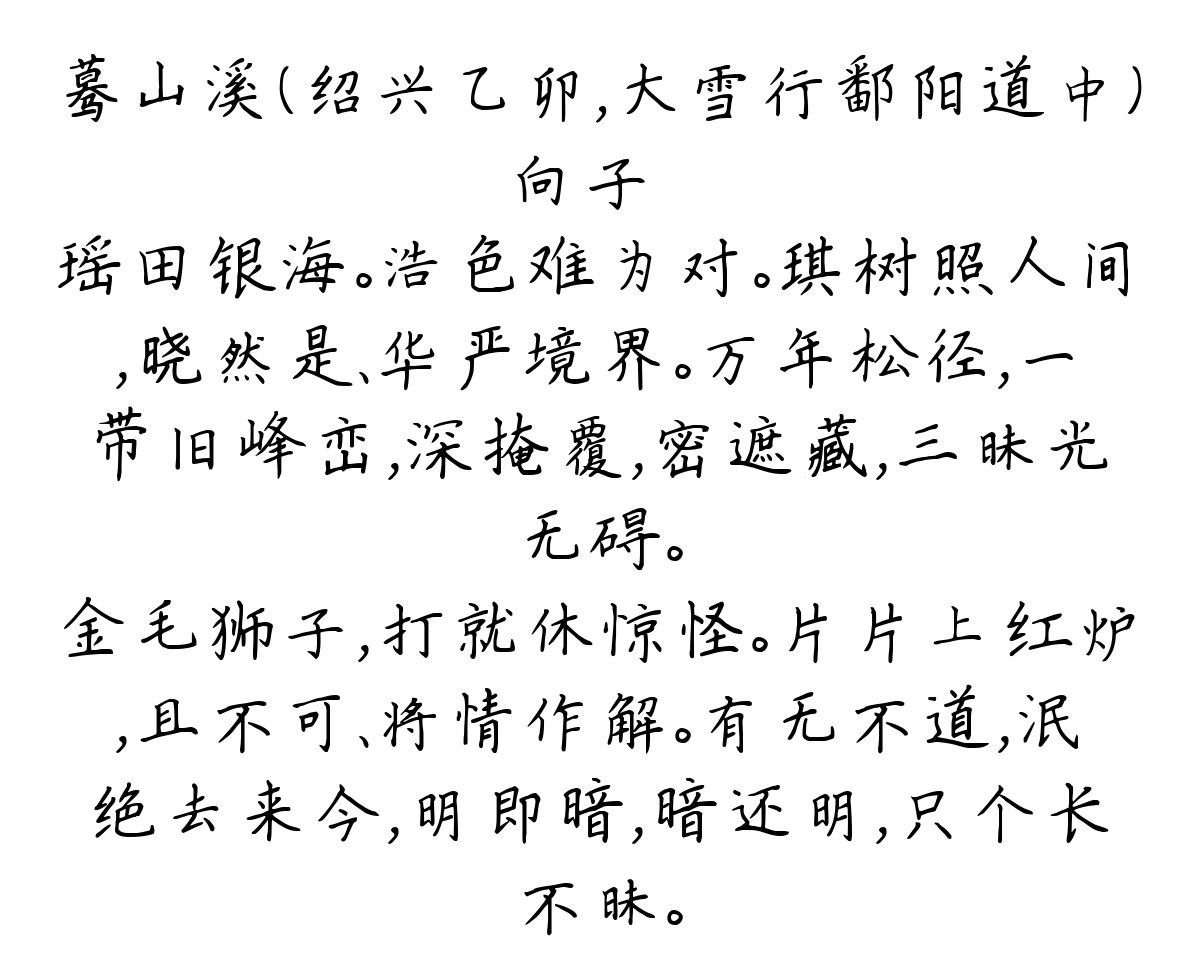 蓦山溪(绍兴乙卯,大雪行鄱阳道中)
向子
瑶田银海。浩色难为对。琪树照人间
,晓然是、华严境界。万年松径,一
带旧峰峦,深掩覆,密遮藏,三昧光
无碍。
金毛狮子,打就休惊怪。片片上红炉
,且不可、将情作解。有无不道,泯
绝去来今,明即暗,暗还明,只个长
不昧。